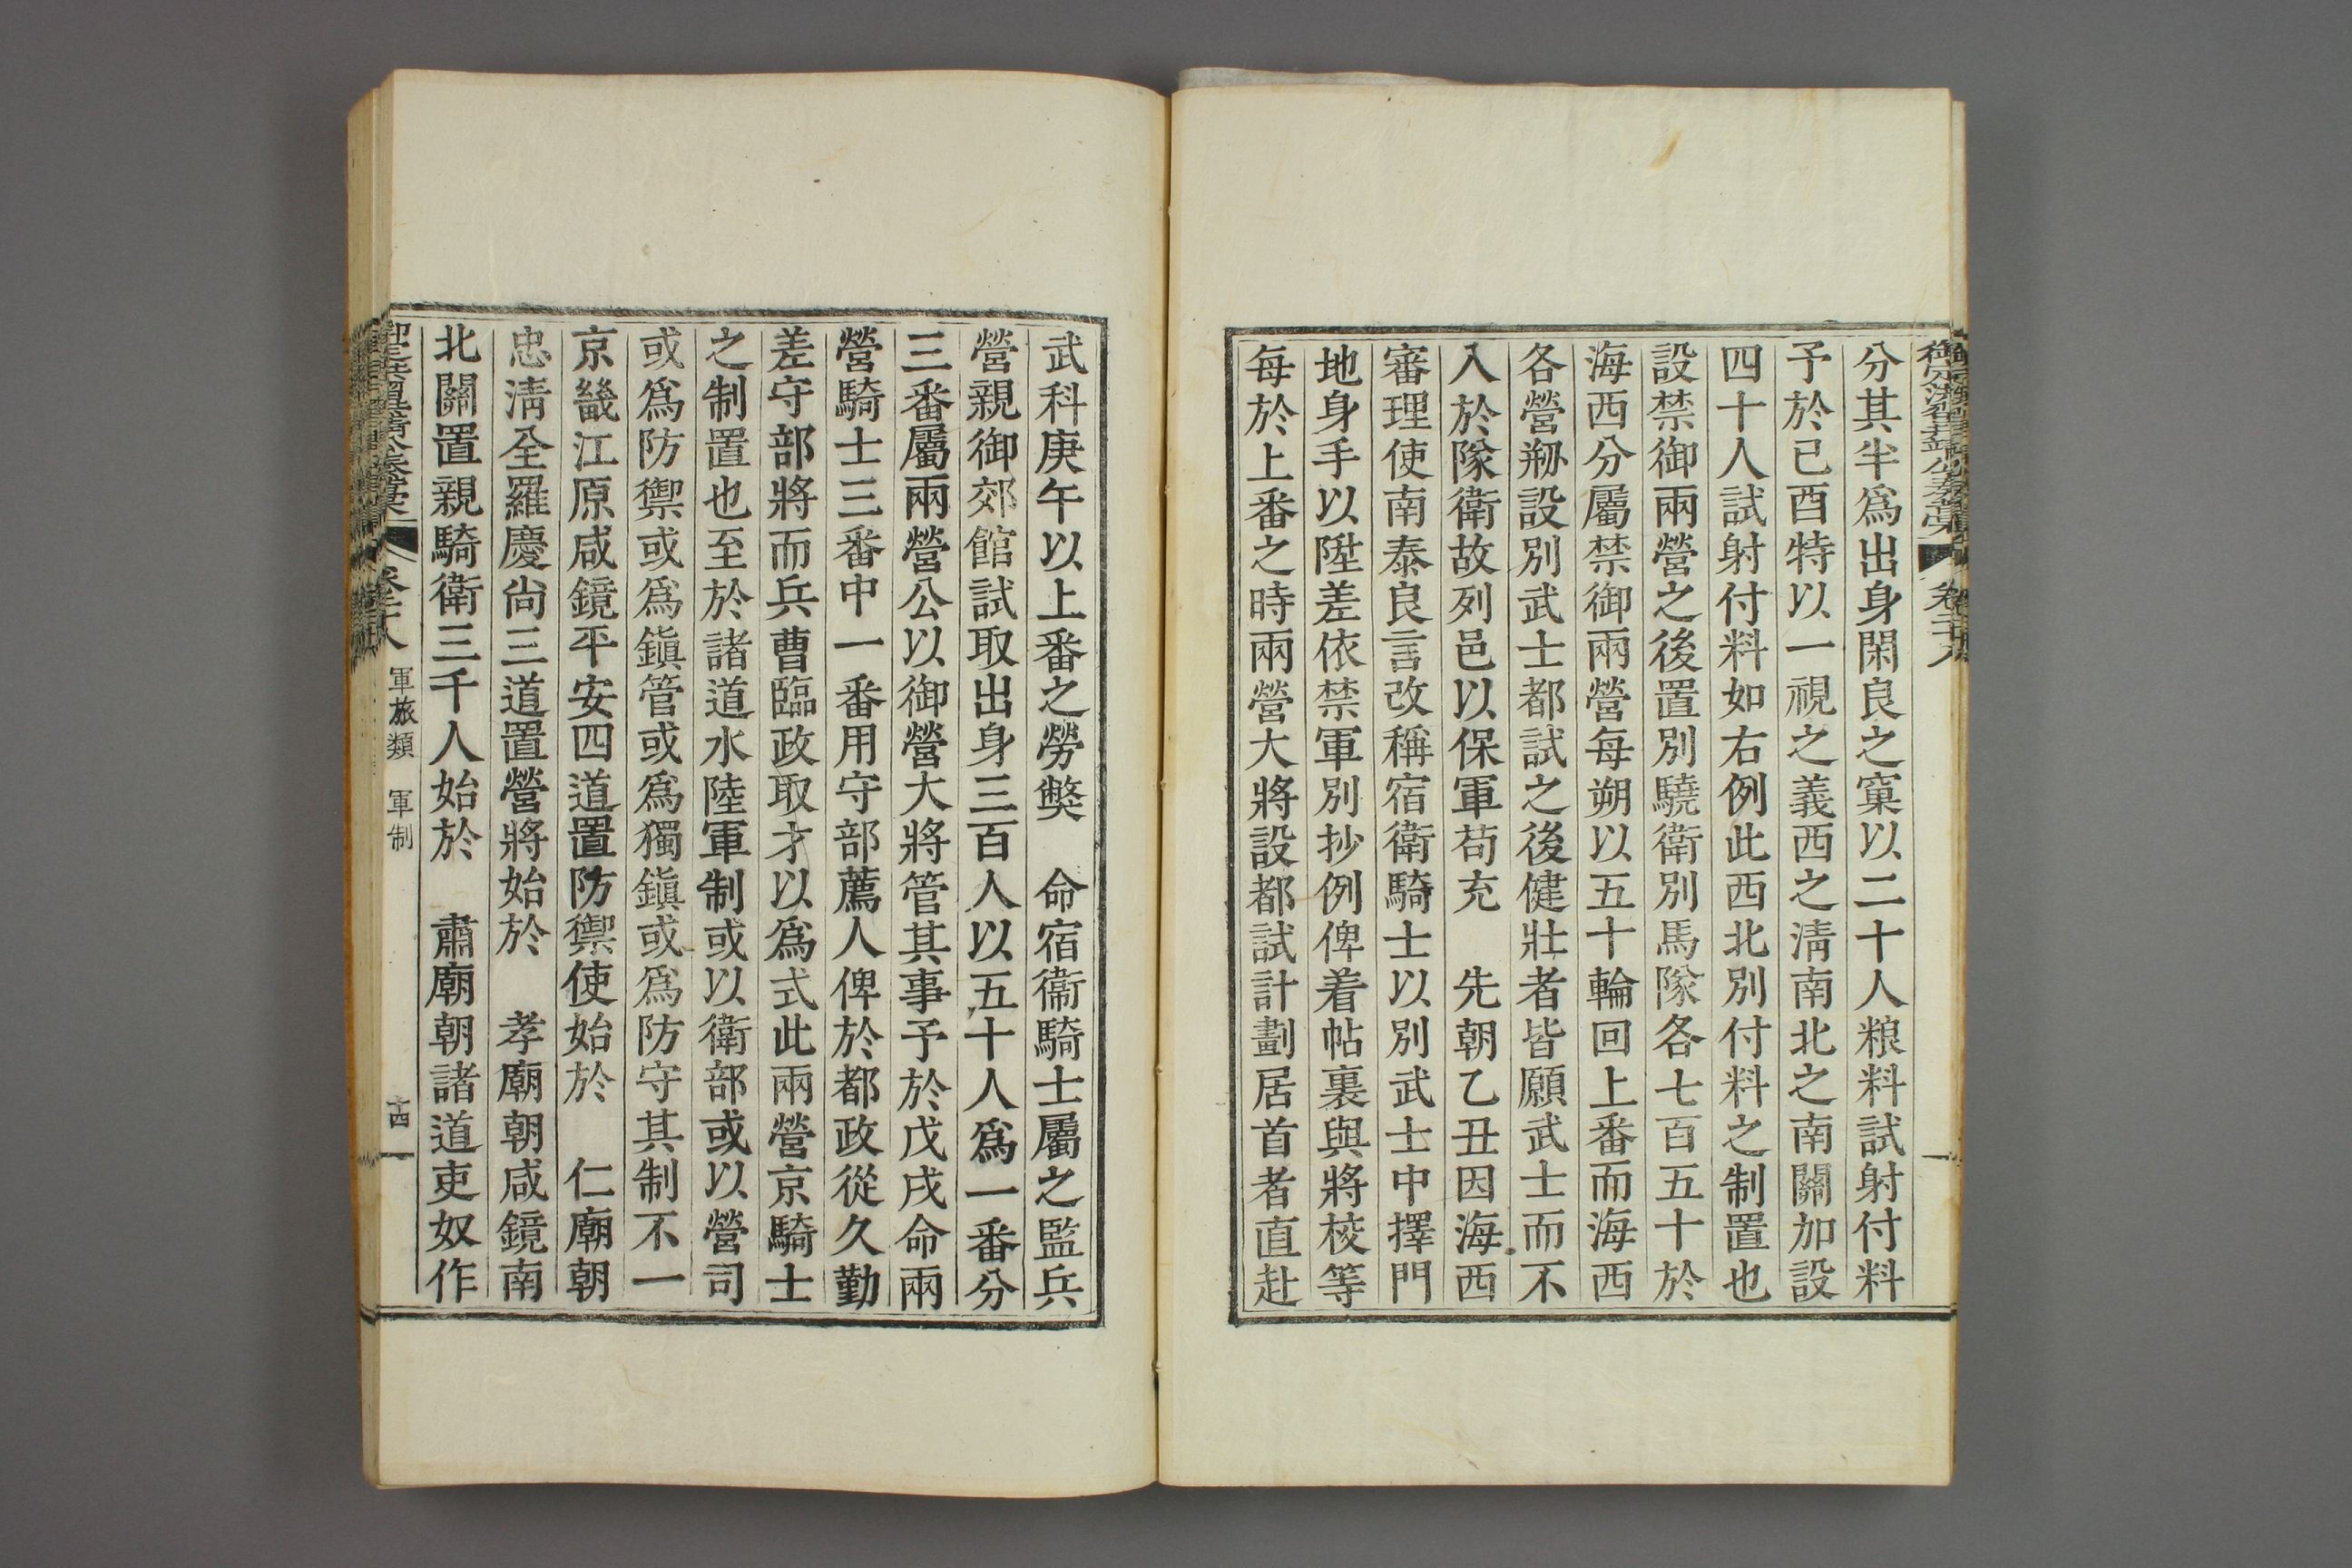 分其半爲出身閑良之窠以二十人粮料試射付料
予於已酉特以一視之義西之淸南北之南關加設
四十人試射付料如右例此西北別付料之制置也
設禁御兩營之後置別驍衛別馬隊各七百五十於
海西分屬禁御兩營每朔以五十輪回上番而海西
各營刱設別武士都試之後健壯者皆願武士而不
入於隊衛故列邑以保軍苟充　先朝乙丑因海西
審理使南泰良言改稱宿衛騎士以別武士中擇門
地身手以陞差依禁軍別抄例俾着帖裏與將校等
每於上番之時兩營大將設都試計劃居首者直赴
武科庚午以上番之勞獘　命宿衛騎士屬之監兵
營親御郊館試取出身三百人以五十人爲一番分
三番屬兩營公以御營大將管其事予於戊戌命兩
營騎士三番中一番用守部薦人俾於都政從久勤
差守部將而兵曹臨政取才以爲式此兩營京騎士
之制置也至於諸道水陸軍制或以衛部或以營司
或爲防禦或爲鎭管或爲獨鎭或爲防守其制不一
京畿江原咸鏡平安四道置防禦使始於　仁廟朝
忠淸全羅慶尙三道置營將始於　孝廟朝咸鏡南
北關置親騎衛三千人始於　肅廟朝諸道吏奴作
卷二十八　軍旅類　軍制　十四